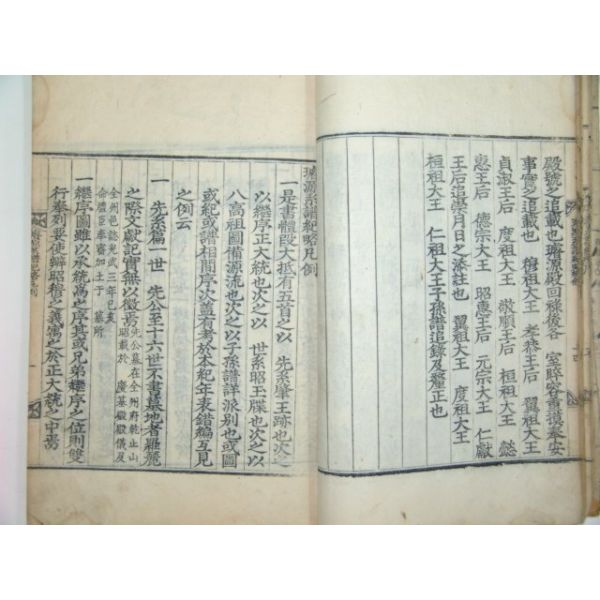 殿號之追載也璿源殿回祿後各 室睟容奮謨奉安
事實之追載也 穆祖大王 孝恭王后 翼祖大王
貞淑王后 度祖大王 敬順王后 桓祖大王 懿
惠王后 德宗大王 昭惠王后 元宗大王 仁獻
王后追學月日之添註也 翼祖大王 度祖大王
桓祖大王 元宗大王子孫譜追錄及釐正也
璿源系譜紀略凡例
一是書體段大抵有五首之以 先系肇王跡也次之
以繼序正大統也次之以 世系昭玉牒也次之以
八高祖圖備源流也次之以子孫譜詳派別也或圖
或紀或譜相間序次盖有考於本紀年表錯編互見
之例云
一 先系篇一世 先公至十六世不書墓地者羅麗
之際文獻記實無以徵焉先公墓在全州府乾止山昭載於 慶基殿殿儀及
全州邑誌光武三年己亥命禮臣奉審加土于 墓所
一繼序圖雖以承統爲之序其或兄弟繼序之位則雙
行奉列要使辯昭穆之義寓之於正大統之中焉